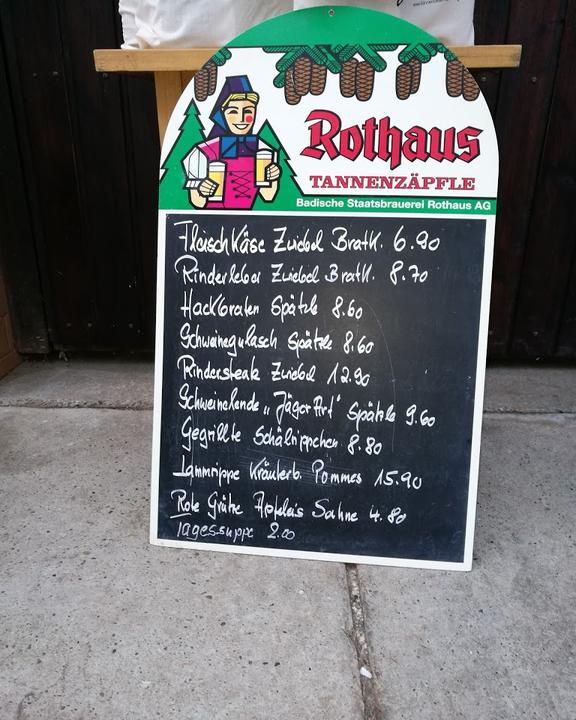 Rothaus
TANNENZÄPFLE
Badische Staatsbrauerei Rothaus AG
Fleischkäse Zwiebel Bratk. 6.90
Rinderleber Zwiebel Bratk. 8.70
Hackbraten Spätzle 8.60
Schweinegulasch Spätzle 8.60
Rindersteak Zwiebel 12.90
Schweinelende "Jäger Art" Spätzle 9.60
Gegrillte Schälrippchen 8.80
Lammrippe Kräuterb. Pommes 15.90
Rote Grütze Apfeleis Sahne 4.80
Tagessuppe 2.00